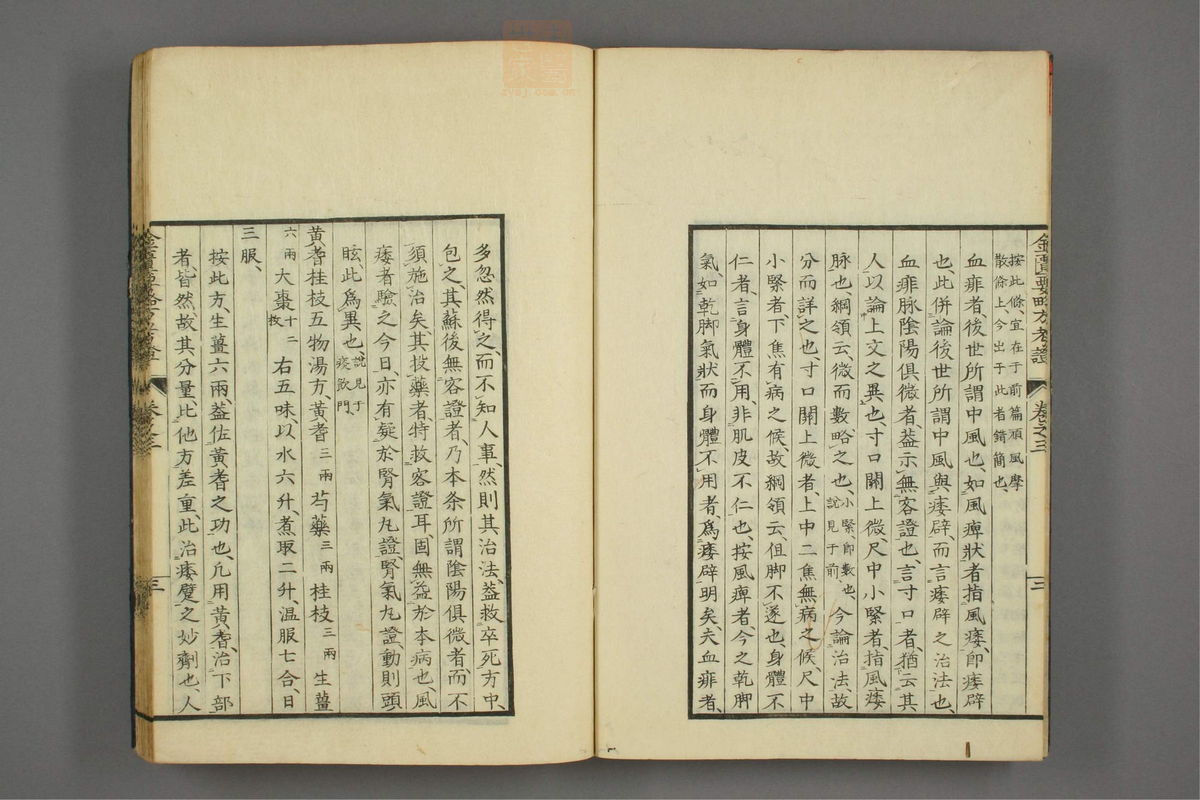 金匱要略方考證 卷之三 三
按此條、宜在于前篇頭風摩
散條上、今出于此者錯簡也、
血痺者、後世所謂中風也、如風痺狀者指風痿、即痿躃
也、此併論後世所謂中風與痿躃、而言痿躃之治法也、
血痺脉陰陽俱微者、蓋示無客證也、言寸口者、猶云其
人以論上文之異也、寸口關上微、尺中小緊者、指風痿
脉也、綱領云、微而數略之也、小緊、即數也、說見于前 今論治法故
分而詳之也、寸口關上微者、上中二焦無病之候、尺中
小緊者、下焦有病之候、故綱領云、但脚不遂也、身體不
仁者、言身體不用、非肌皮不仁也、按風痺者、今之乾脚
氣、如乾脚氣狀而身體不用者、爲痿躃明矣、夫血痺者、
多忽然得之、而不知人事、然則其治法蓋救卒死方中、
包之、其蘇後無客證者、乃本条所謂陰陽俱微者而不
須施治矣、其投藥者、特救客證耳、固無益於本病也、風
痿者驗之今日、亦有疑於腎氣丸證、腎氣丸證、動則頭
眩此爲異也、說見于痰飲門
黃耆桂枝五物湯方、黃耆三兩 芍藥三兩 桂枝三兩 生薑
六兩 大棗十二枚 右五味、以水六升、煮取二升、温服七合、日
三服、
按此方、生薑六兩、蓋佐黃耆之功也、凡用黃耆、治下部
者、皆然、故其分量、比他方差重、此治痿躄之妙劑也、人